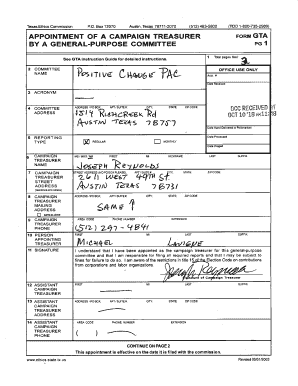 Texas Ethics Commission P.O. Box 12070 Austin, Texas 78711-2070 (512) 463-5800 (TDD 1-800-735-2989)
APPOINTMENT OF A CAMPAIGN TREASURER
BY A GENERAL-PURPOSE COMMITTEE
FORM GTA
PG 1
See GTA Instruction Guide for detailed instructions.
1 Total pages filed:
2 COMMITTEE NAME
POSITIVE CHANGE PAC
OFFICE USE ONLY
3 ACRONYM
Date Received
4 COMMITTEE ADDRESS
ADDRESS / PO BOX; APT / SUITE #; CITY; STATE; ZIP CODE
1514 RICHCREEK Rd
AUSTIN TEXAS 78757
DOC RECEIVED
Date Hand-Delivered or Postmarked
5 REPORTING TYPE
REGULAR
MONTHLY
Date Processed
Date Imaged
6 CAMPAIGN TREASURER NAME
FIRST MI NICKNAME LAST SUFFIX
JOSEPH REYNOLDS
7 CAMPAIGN TREASURER STREET ADDRESS
2611 WEST 49TH ST
AUSTIN TEXAS 78731
8 CAMPAIGN TREASURER MAILING ADDRESS
ADDRESS / PO BOX; APT / SUITE #; CITY; STATE; ZIP CODE
SAME
9 CAMPAIGN TREASURER PHONE
AREA CODE PHONE NUMBER EXTENSION
(512) 297-4841
10 PERSON APPOINTING TREASURER
FIRST MI LAST SUFFIX
MICHAEL LAVIGNE
11 SIGNATURE
I understand that I have been appointed as the campaign treasurer for this general-purpose
committee and that I am responsible for filing all required reports and that I may be subject to
fines for failure to do so. I am aware of the restrictions in title 15 of the Election Code on contributions
from corporations and labor organizations.
Signature of Campaign Treasurer
12 ASSISTANT CAMPAIGN TREASURER
FIRST MI LAST SUFFIX
13 ASSISTANT CAMPAIGN TREASURER ADDRESS
ADDRESS / PO BOX; APT / SUITE #; CITY; STATE; ZIP CODE
14 ASSISTANT CAMPAIGN TREASURER PHONE
AREA CODE PHONE NUMBER EXTENSION
( )
CONTINUE ON PAGE 2
This appointment is effective on the date it is filed with the commission.
www.ethics.state.tx.us